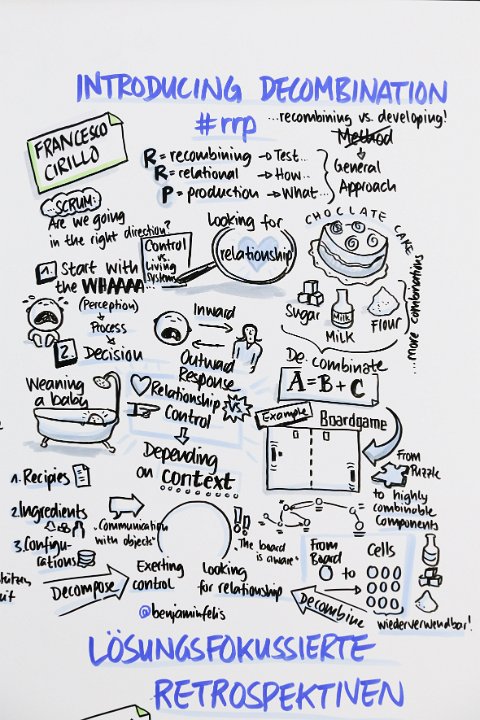 INTRODUCING DECOMBINATION
#rrp
...recombining vs. developing!
Method
FRANCESCO
CIRILLO
R = recombining → Test...
R = relational → How...
P = production → What...
General
Approach
SCRUM:
Are we going
in the right direction?
Control
vs.
Living
Systems
Looking for
relationship
CHOCLATE CAKE
...more combinations
Sugar
Milk
MiLK
Flour
1. Start with
the WHAAAA...
(Perception)
Process
2. Decision
Inward
Outward
Response
De combinate
A = B + C
Weaning
a baby
Relationship
vs.
Control
Depending
on context
Example
Boardgame
From
Puzzle
to highly
combinable
Components
1. Recipies
2. Ingredients
3. Configu-
rations
"Communication
with objects"
"The board
is aware"
From
Board
to
Cells
Decompose
Exerting
control
Looking
for relationship
Decombine
wiederverwendbar!
@benjaminfelis
LÖSUNGSFOKUSSIERTE
RETROSPEKTIVEN